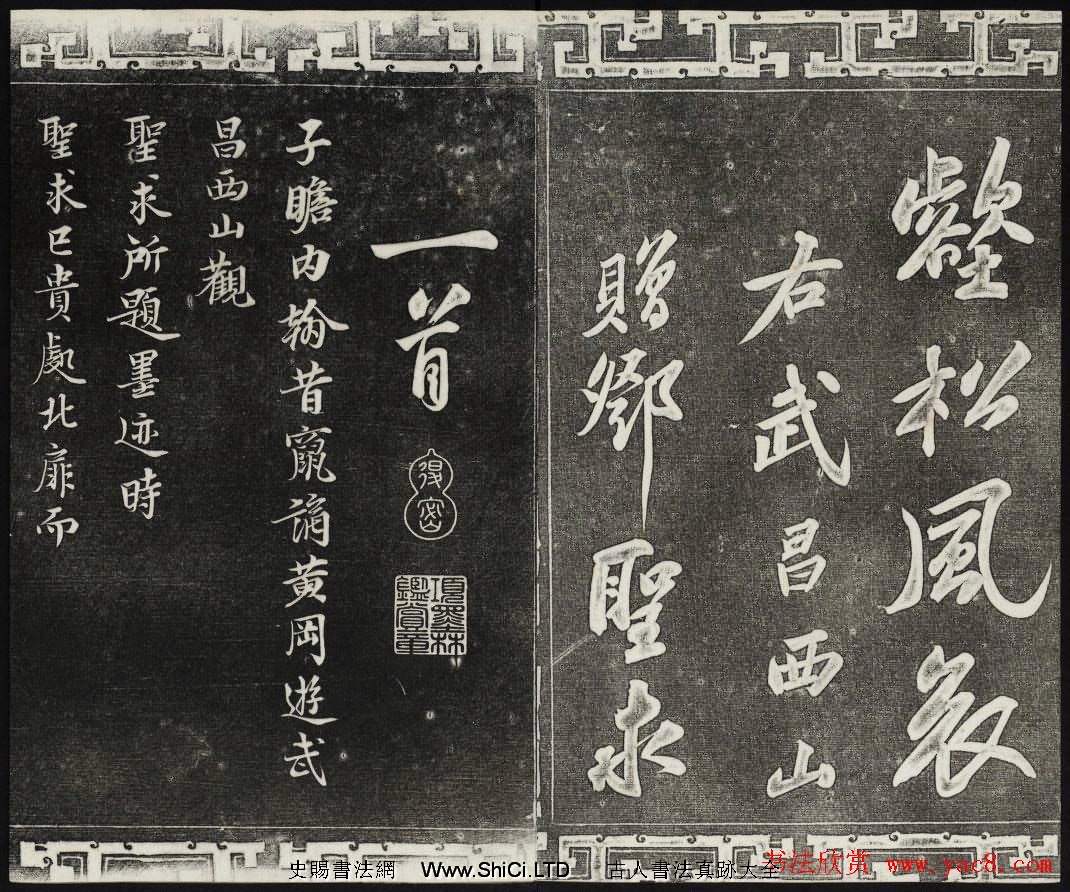 壑松風哀
右武昌西山
贈鄧聖求
一首
得密
項墨林
鑑賞章
子瞻内翰昔竄謫黄岡遊武
昌西山觀
聖求所題墨迹時
聖求已貴處北扉而
史賜書法網 Www.ShiCi.LTD 古人書法真跡大全
书法欣赏 www.yac8.com